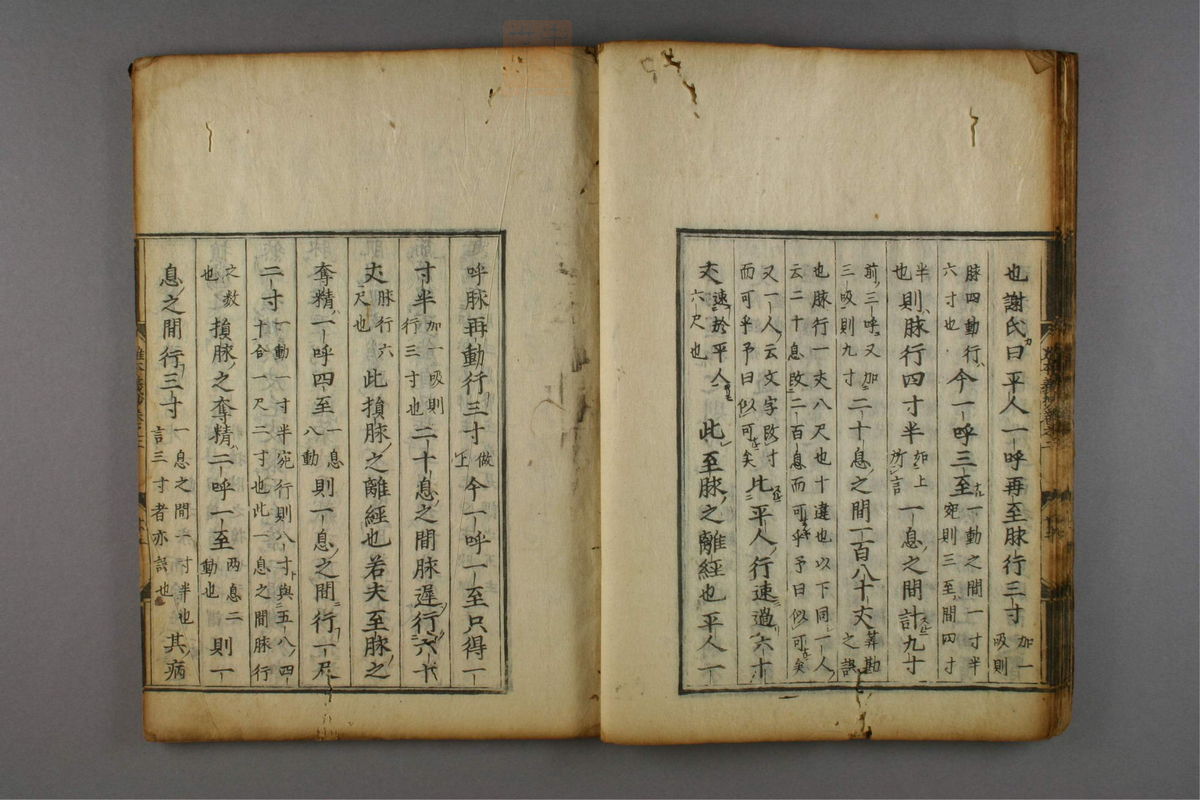 也謝氏曰平人一呼再至脉行三寸加一吸則
脉四動行六寸也今一呼三至一動之間一寸半宛則三至間四寸
半也則脉行四寸半如上所言一息之間計九寸
前三呼又加三吸則九寸二十息之間一百八十丈筭勘之誤
也脉行一丈八尺也十違也以下同一人
云二十息改二百息而可乎予曰似可矣
又一人云文字改寸而可乎予曰似可矣比平人行速過六十
丈速於平人六尺也此至脉之離經也平人一
呼脉再動行三寸做上今一呼一至只得一
寸半加一吸則行三寸也二十息之間脉遲行六十
丈脉行六尺也此損脉之離經也若夫至脉之
奪精一呼四至一息八動則一息之間行一尺
二寸一動一寸半宛行則八寸與五八四十合一尺二寸也此一息之間脉行
之数也損脉之奪精二呼一至两息二動也則一
息之間行三寸一息之間一寸半也言三寸者亦誤也其病